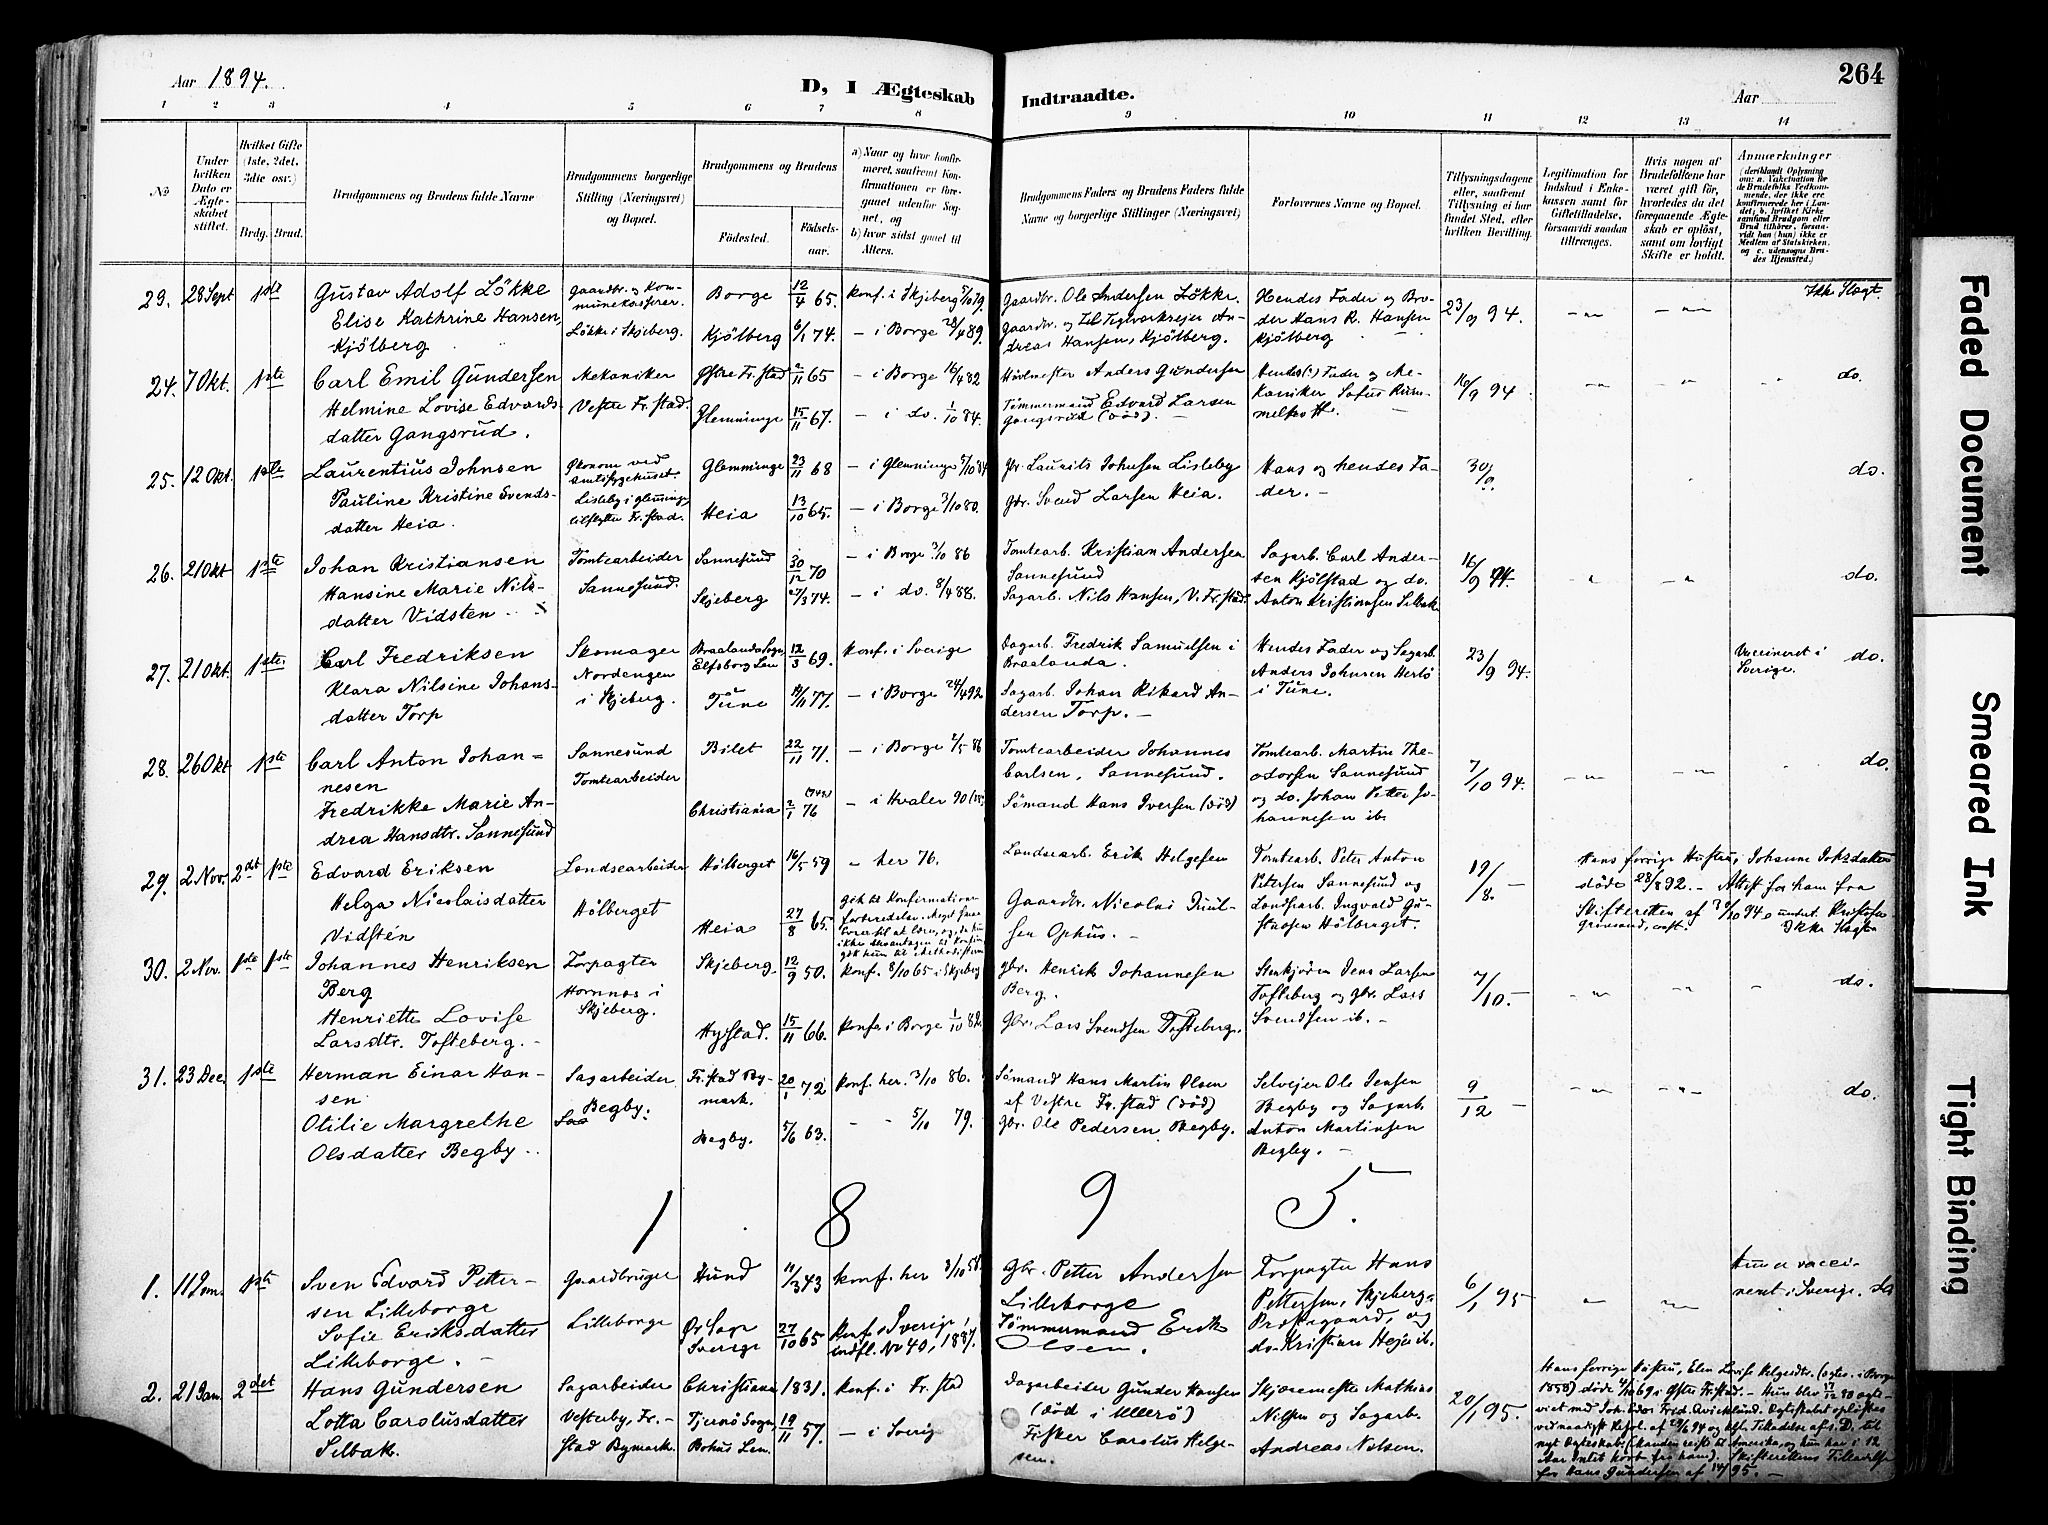 Aar 1894.
D, 1 Ægteskab Indtraadte.
Aar
264
1 2 3 4 5 6 7 8 9 10 11 12 13 14
No
Under hvilken Dato er Ægteskabet stiftet.
Hvilket Gifte (1ste, 2det, 3die osv.)
Brdg. Brud.
Brudgommens og Brudens fulde Navne
Brudgommens borgerlige Stilling (Næringsvei) og Bopæl.
Brudgommens og Brudens
Fødested.
Fødselsaar.
a) Naar og hvor konfirmeret, saafremt Konfirmationen er foregaaet udenfor Sognet, og
b) hvor sidst gaaet til Alters.
Brudgommens Faders og Brudens Faders fulde Navne og borgerlige Stillinger (Næringsvei)
Forlovernes Navne og Bopæl.
Tillysningsdagene eller, saafremt Tillysning ei har fundet Sted, efter hvilken Bevilling.
Legitimation for Indskud i Enkekassen samt for Giftetilladelse, forsaavidt saadan tiltrænges.
Hvis nogen af Brudefolkene har været gift før, hvorledes da det foregaaende Ægteskab er opløst, samt om lovligt Skifte er holdt.
Anmærkninger
(deriblandt Oplysning om: a. Vakcination for de Brudefolks Vedkommende, der ikke ere konfirmerede her i Landet; b. hvilket Kirkesamfund Brudgom eller Brud tilhører, forsaavidt han (hun) ikke er Medlem af Statskirken, og c. udensogns Brudes Hjemsted.)
29. 28 Sept 1ste
Gustav Adolf Lökke
Elise Kathrine Hansen,
Kjölberg
Gaardbr. og Kommunekasserer.
Lökke i Skjeberg.
Borge 12/4 65. Konf. i Skjeberg 5/10 79.
Kjölberg 6/1 74. — i Borge 28/4 89.
Gaardbr. Ole Andersen Lökke.
Hendes Fader og Broder Hans R. Hansen Kjölberg
23/9 94.
Ikke Slægt.
24. 7 Okt. 1ste
Carl Emil Gundersen
Helmine Lovise Edvardsdatter Gangsrud.
Mekaniker
Vestre Fr.stad.
Østre Fr.stad 2/11 65 — i Borge 16/4 82
Glemminge 15/11 67. — i do. 1/10 84.
Anders Gundersen
Tömmermand Edvard Larsen
Gangsrud (död).
16/9 94
do.
25. 12 Okt. 1ste
Laurentius Johnsen
Pauline Kristine Svendsdatter Heia.
Økonom ved Amtssygehuset.
Glemminge 23/11 68 — i Glemminge 5/10 84
Heia 13/10 65. — i Borge 3/10 80.
Gbr. Laurits Johnsen Lisleby
Gbr. Svend Larsen Heia.
Hans og hendes Fader. —
30/9
do.
26. 21 Okt 1ste
Johan Kristiansen
Hansine Marie Nilsdatter Vidsten
Tomtearbeider
Sannesund.
Sannesund 30/12 70 — i Borge 3/10 86
Skjeberg 27/3 74. — i do. 8/4 88.
Tomtearb. Kristian Andersen
Sannesund
Sagarb. Nils Hansen, V. Fr.stad.
Sagarb. Carl Andersen Kjölstad og do.
Anton Kristiansen Selbak
16/9 94.
do.
27. 21 Okt. 1ste.
Carl Fredriksen
Klara Nilsine Johansdatter Torp
Skomager
Nordengen
i Skjeberg.
Braalanda Sogn, Elfsborg Len 12/3 69. Konf. i Sverige
Tune 19/11 77. — i Borge 24/4 92
Dagarb. Fredrik Samuelsen i
Braalanda.
Sagarb. Johan Rikard Andersen Torp. —
Hendes Fader og Sagarb.
Anders Johnsen Herlö
i Tune.
23/9 94.
Vaccineret i Sverige.
do.
28. 26 Okt 1ste
Carl Anton Johannesen
Fredrikke Marie Andrea Hansdtr. Sannesund
Sannesund
Tomtearbeider
Bilet 22/11 71. — i Borge 2/5 86
Christiania 2/1 76 — i Hvaler 90
Tomtearbeider Johannes
Carlsen, Sannesund.
Sömand Hans Iversen (död)
Tomtearb. Martin Theodorsen Sannesund
og do. Johan Petter Johannesen ib.
7/10 94.
do.
29. 2 Nov. 2det 1ste
Edvard Eriksen
Helga Nicolaisdatter
Vidstén
Londsearbeider
Hölberget
Hölberget 16/5 59 — her 76.
Heia 27/8 65.
Londsearb. Erik Helgesen
Gaardbr. Nicolai Paulsen Ophus. —
Tomtearb. Peter Anton
Petersen Sannesund og
Londsearb. Ingvald Gustavsen Hölberget.
19/8. —
Hans forrige Hustru, Johanne
döde 28/8 92. — Attest for ham fra
Skifteretten af
Ikke Slægt
30. 2 Nov. 1ste 1ste
Johannes Henriksen
Berg
Henriette Lovise
Larsdtr. Tofteberg. —
Forpagter
Hornnes i
Skjeberg.
Skjeberg. 12/9 50. Konf. 8/10 65 i Skjeberg
15/11 66. Konf. i Borge 1/10 82.
Gbr. Henrik Johannesen
Berg.
Gbr. Lars Svendsen Tofteberg.
Jens Larsen
Tofteberg og Gbr. Lars
Svendsen ib. —
7/10. —
do.
31. 23 Dec. 1ste
Herman Einar Hansen
Otilie Margrethe
Olsdatter Begby
Sagarbeider
Begby.
Fr.stad Bymark. 20/1 72 Konf. her. 3/10 86.
Begby. 5/6 63. 5/10 79.
Sömand Hans Martin Olsen
af Vestre Fr.stad (död)
Gbr. Ole Pedersen Begby.
Selveier Ole Jensen
Begby og Sagarb.
Anton Martinsen
Begby. —
9/12 —
do.
1 8 9 5.
1. 11 Jan. 1ste
Sven Edvard Pettersen Lilleborge
Sofie Eriksdatter
Lilleborge. —
Gaardbruger
Lilleborge
Hund 11/3 43 Konf. her 3/10 58
Sverige 27/10 65 Konf. i Sverige,
indfl. No 40, 1887.
Gbr. Petter Andersen
Lilleborge
Tömmermand Erik
Olsen.
Forpagter Hans
Pettersen, Skjeberg
Præstegaard, og
do. Kristian Heje ib.
6/1 95
Hun er vaccineret i Sverige. do
2. 21 Jan. 2det
Hans Gundersen
Lotta Carolusdatter
Selbak.
Sagarbeider
Vesterby, Fr.stad Bymark.
Christiania 1831. Konf. i Fr.stad
Tjernö Sogn, Bohus Len. 19/11 57. — i Sverig
Dagarbeider Gunder Hansen
(död i Ullerö)
Fisker Carolus Helgesen.
Skjæremester Mathias
Nilsen og Sagarb.
Andreas Nilsen.
20/1 95.
Hans forrige Hustru, Elen Lovise
Amerika, og hun har i 12
Aar intet hørt fra ham. Skifterettens Tilladelse
for Hans Gundersen af 14/1 95. —
Faded Document
Smeared Ink
Tight Binding